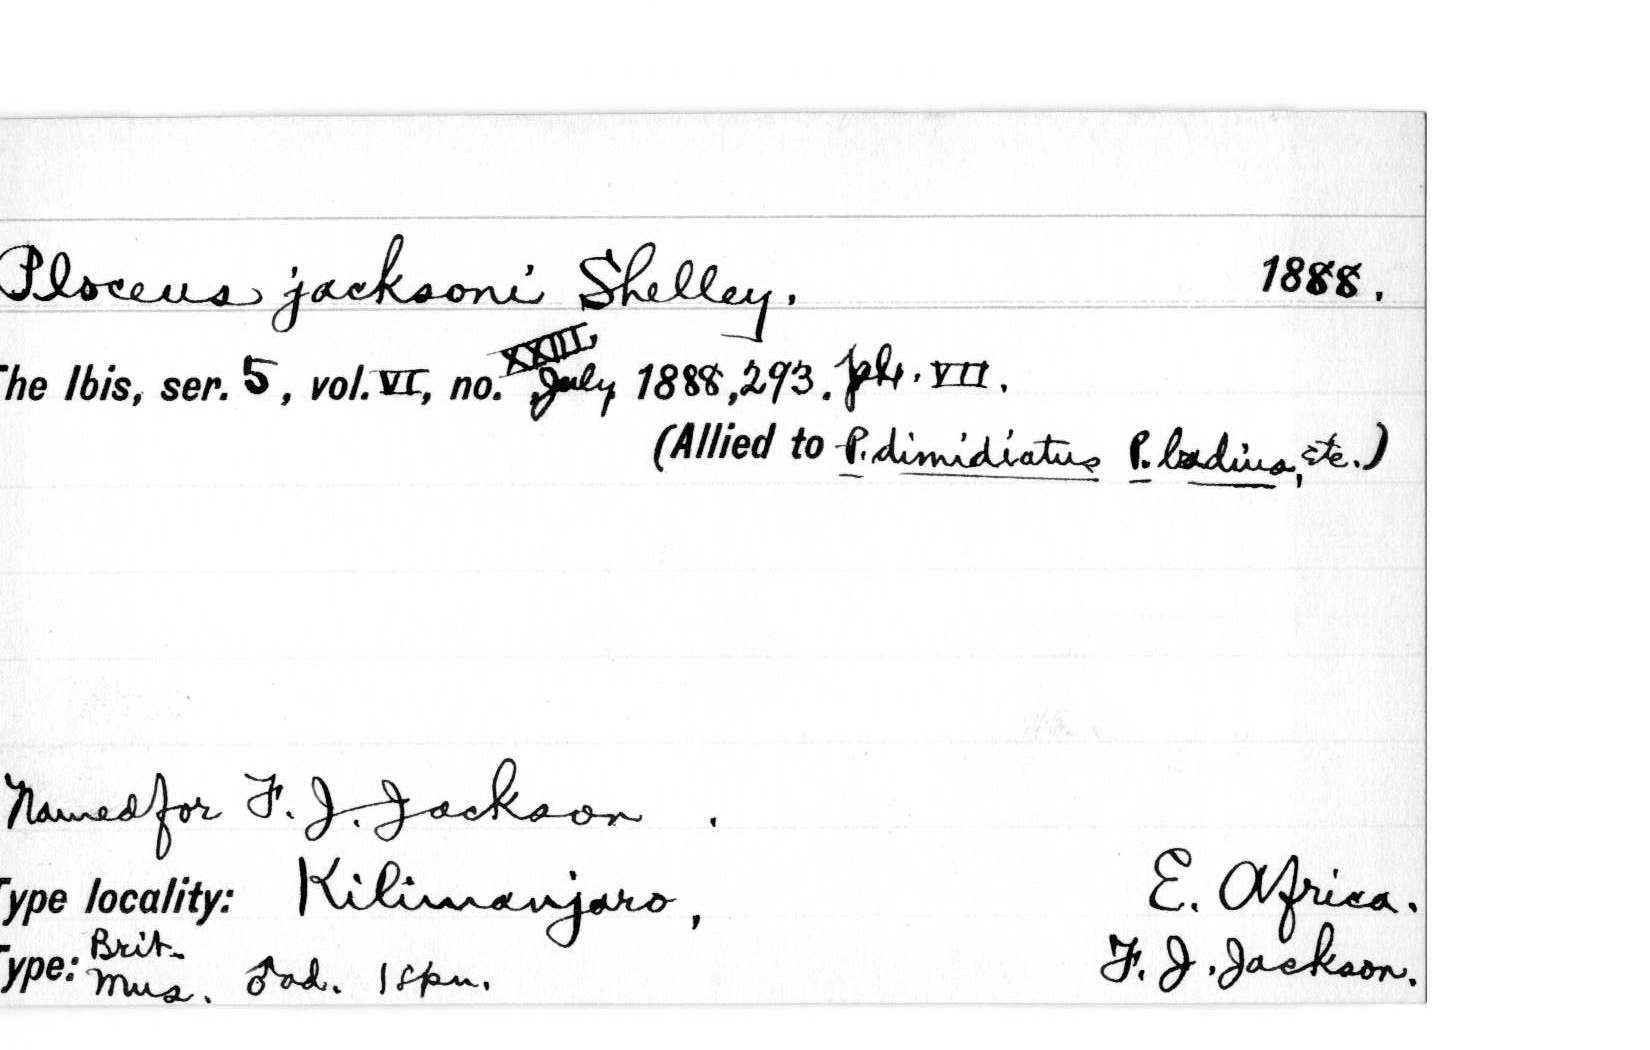 Ploceus jacksoni Shelley. 1888.
The Ibis, ser. 5, vol. VI, no. XXIII, July, 1888, 293. pl. VII.
(Allied to P. dimidiatus P. badius, etc.)
Named for F. J. Jackson .
Type locality: Kilimanjaro, E. Africa.
Type: Brit. Mus. ♂ad. 1 spn. F. J. Jackson.